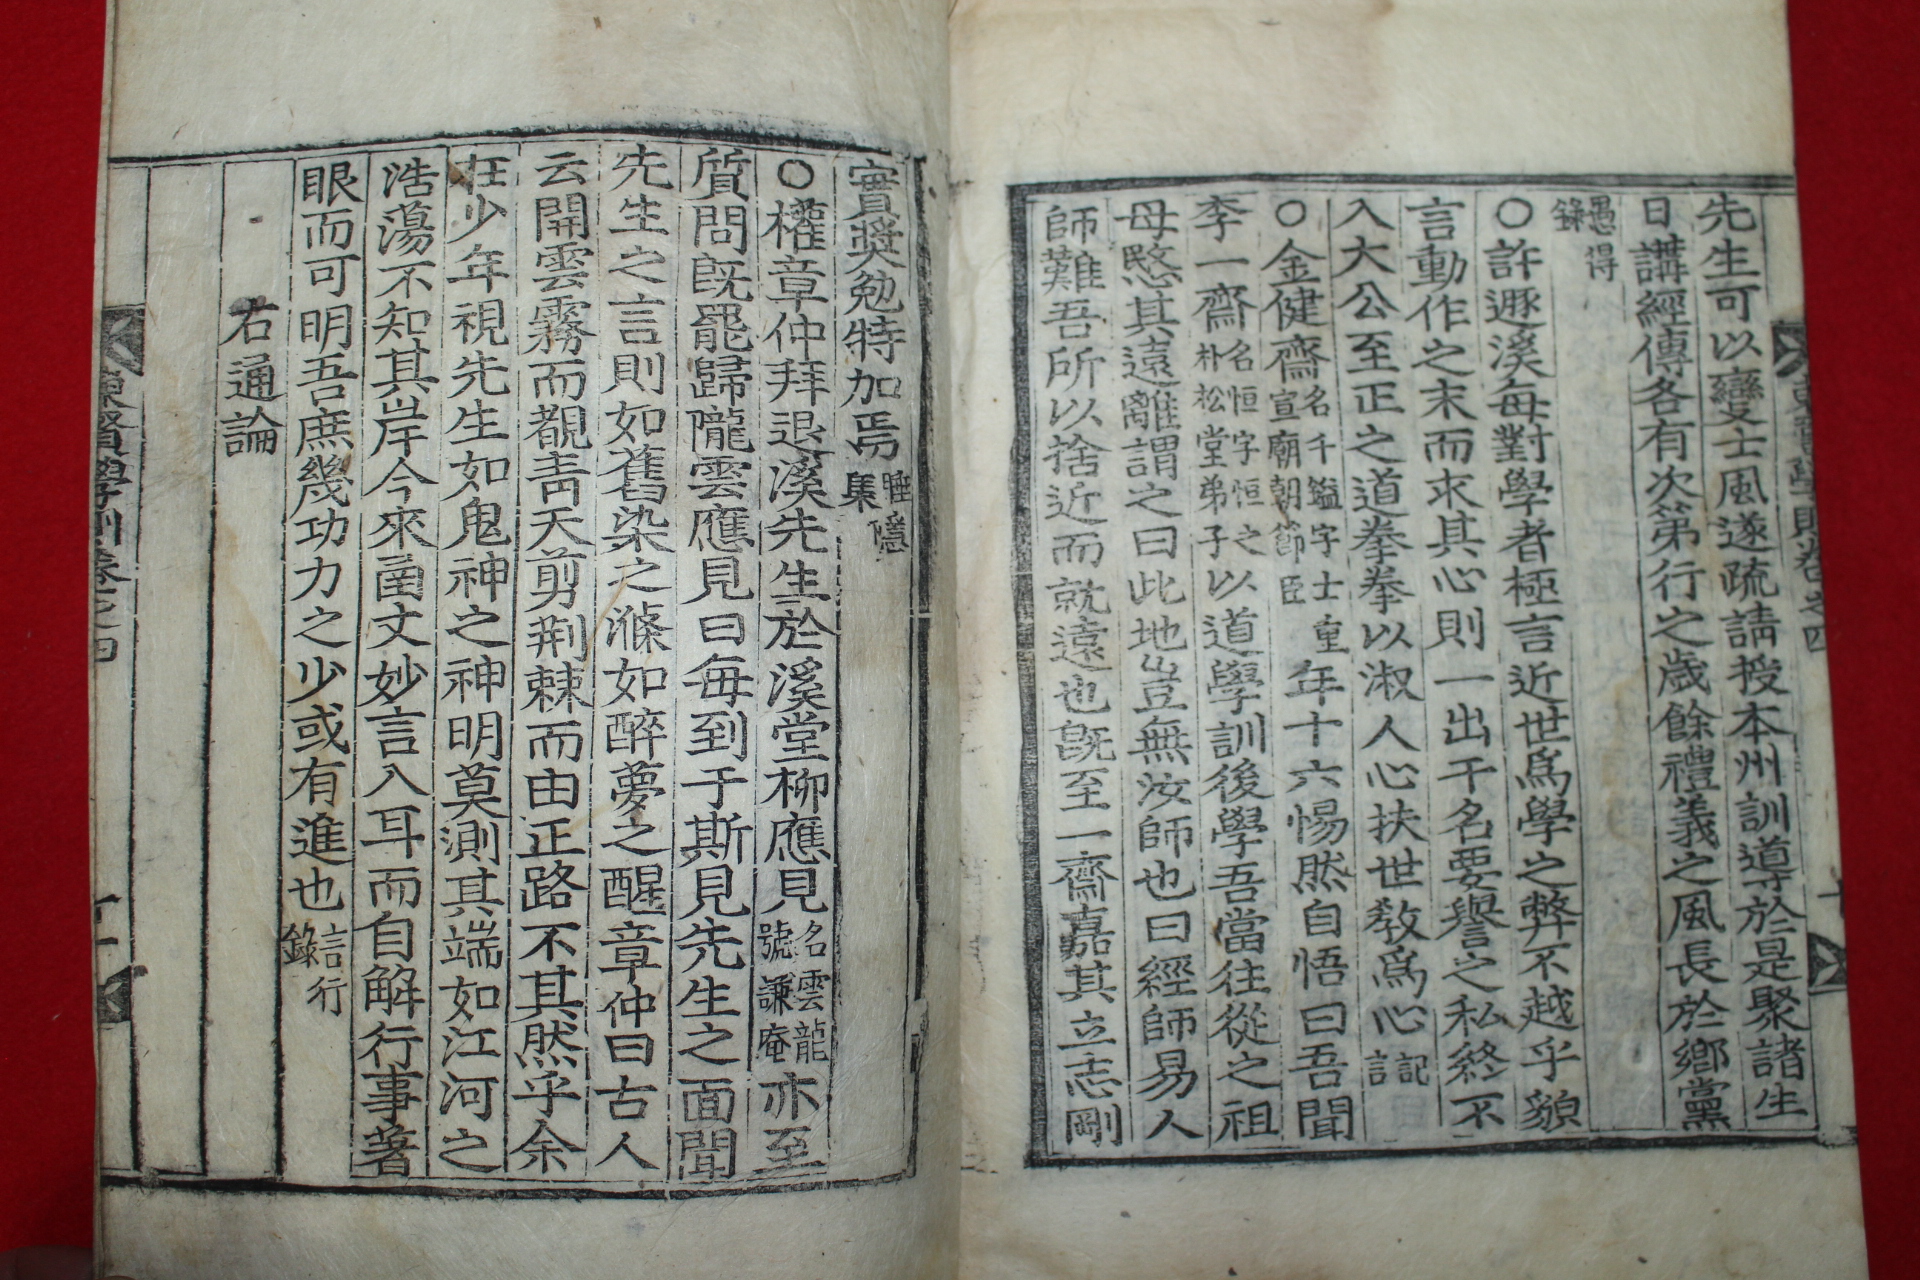 先生可以變士風遂疏請授本州訓導於是聚諸生
日講經傳各有次第行之歲餘禮義之風長於鄉黨
愚得
錄
○許遯溪每對學者極言近世爲學之弊不越乎貌
言動作之末而求其心則一出干名要譽之私終不
入大公至正之道拳拳以淑人心扶世教爲心記言
○金健齋名千鎰字士重宣廟朝節臣年十六惕然自悟曰吾聞
李一齋名恒字恒之朴松堂弟子以道學訓後學吾當往從之祖
母愍其遠離謂之曰此地豈無汝師也曰經師易人
師難吾所以捨近而就遠也旣至一齋嘉其立志剛
實奬勉特加焉睡隱集
○權章仲拜退溪先生於溪堂柳應見名雲龍號謙庵亦至
質問旣罷歸隴雲應見曰每到于斯見先生之面聞
先生之言則如舊染之滌如醉夢之醒章仲曰古人
云開雲霧而覩靑天剪荆棘而由正路不其然乎余
在少年視先生如鬼神之神明莫測其端如江河之
浩蕩不知其岸今來函丈妙言入耳而自解行事著
眼而可明吾庶幾功力之少或有進也言行錄
右通論
東賢學則卷之四
十一